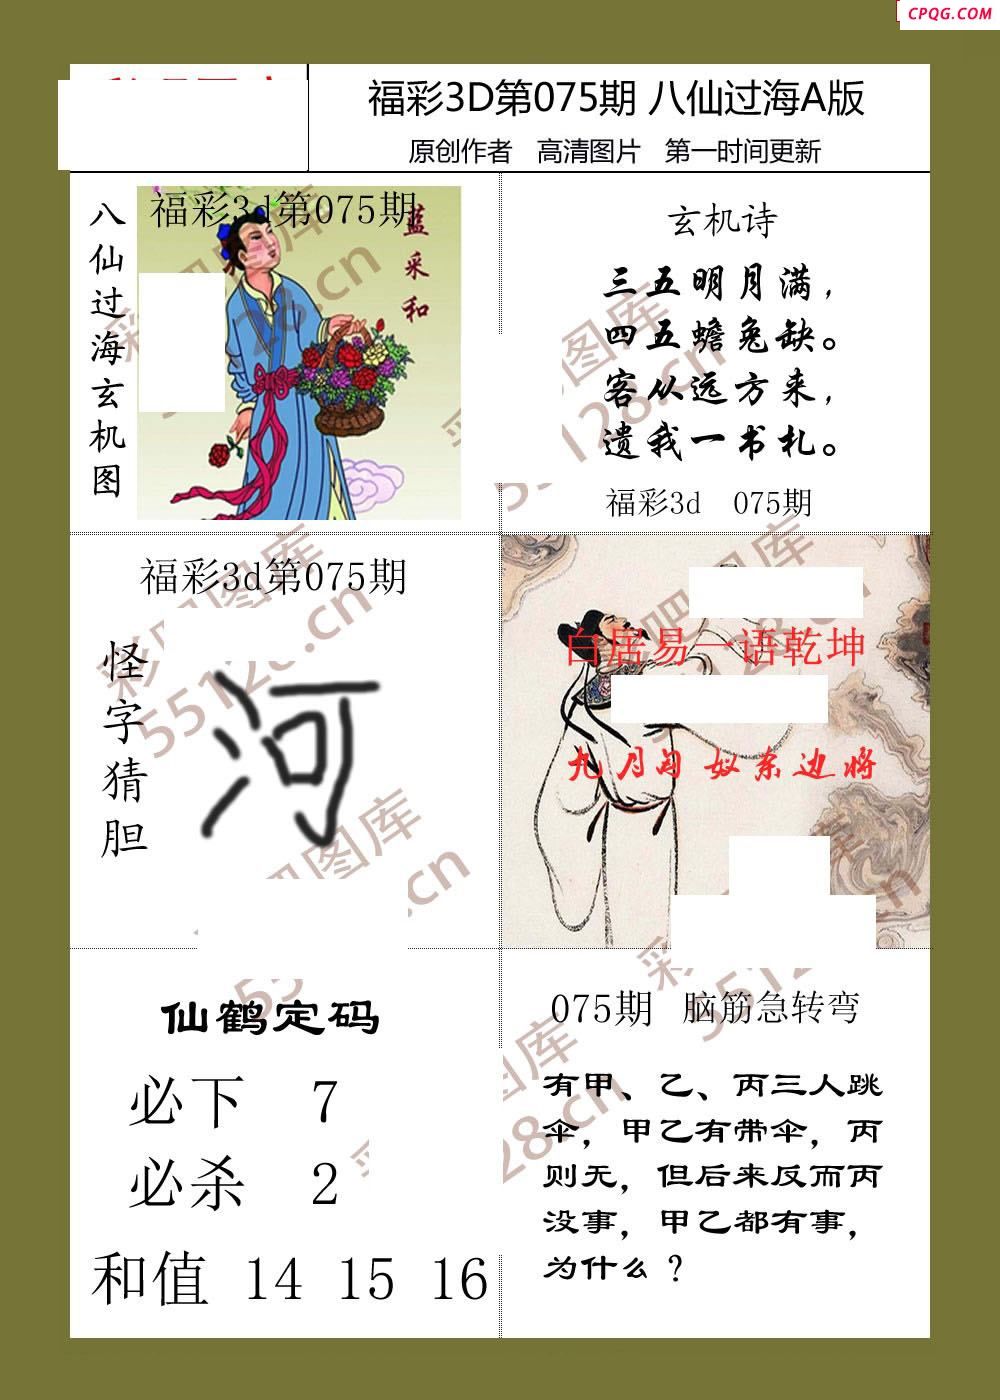 CPQG.COM
福彩3D第075期 八仙过海A版
原创作者 高清图片 第一时间更新
八仙过海玄机图
福彩3d第075期
蓝采和
玄机诗
三五明月满，
四五蟾兔缺。
客从远方来，
遗我一书札。
福彩3d 075期
福彩3d第075期
怪字猜胆
河
白居易一语乾坤
九月匈奴系边将
仙鹤定码
必下 7
必杀 2
和值 14 15 16
075期 脑筋急转弯
有甲、乙、丙三人跳
伞，甲乙有带伞，丙
则无，但后来反而丙
没事，甲乙都有事，
为什么？